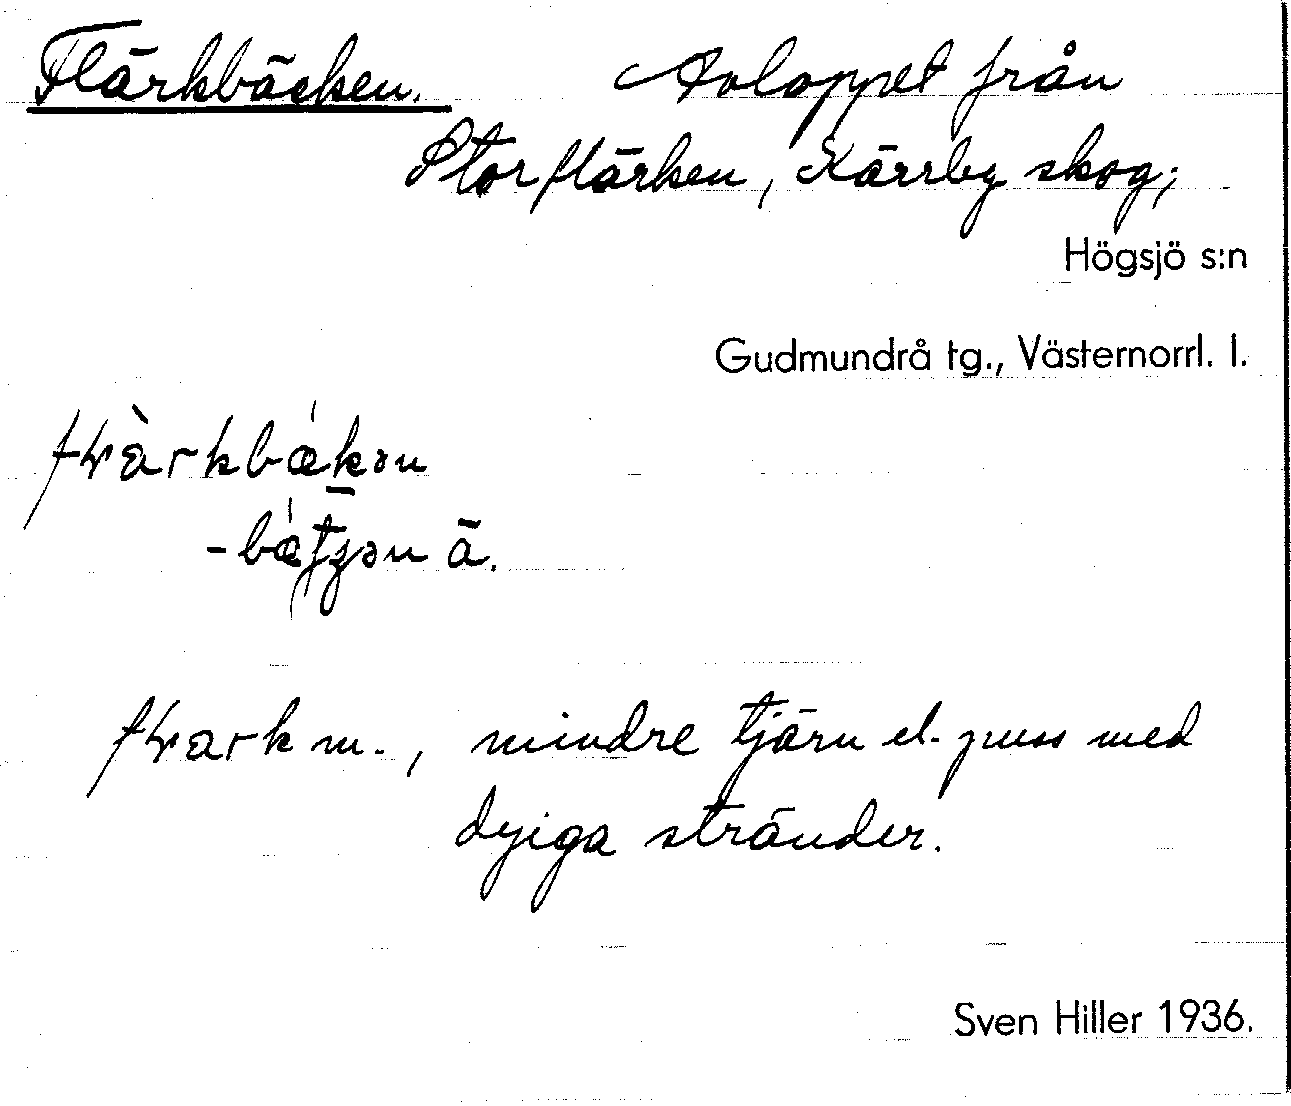 Flärkbäcken. Avloppet från
Storflärken, Kärrby skog;
Högsjö s:n
Gudmundrå tg., Västernorrl. l.
ä.
m., mindre tjärn el. puss med
dyiga stränder.
Sven Hiller 1936.